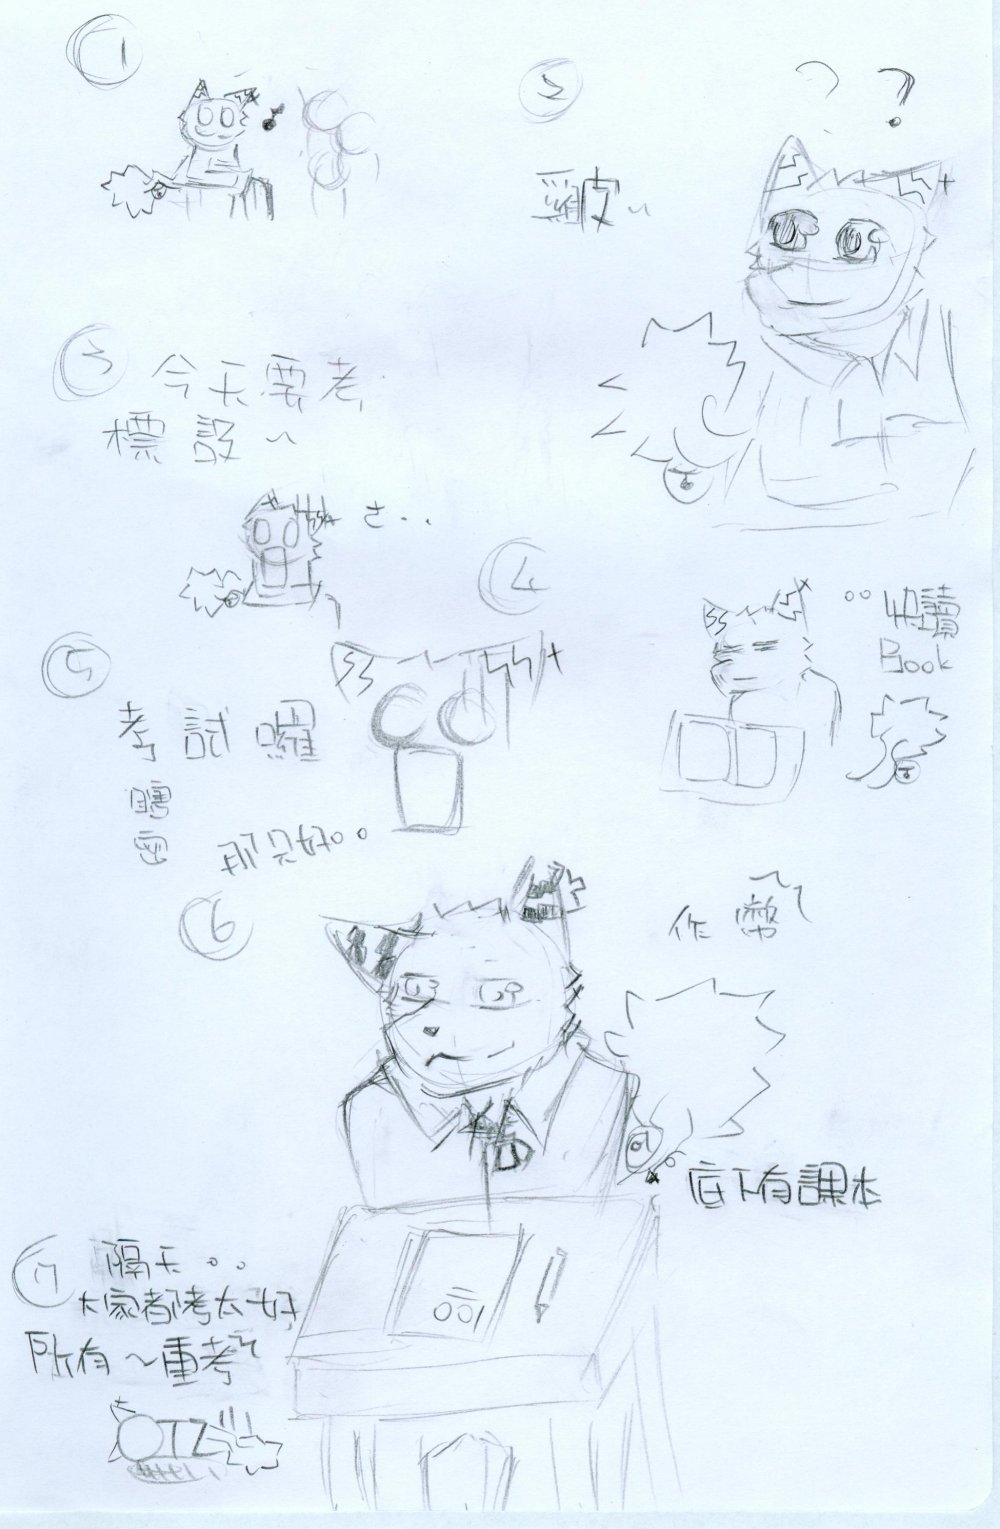 1
2
? ?
皮~
3
今天要考
標設~
さ..
4
..快讀
Book
5
考試囉
瞎
密
那只好..
6
作弊
底下有課本
001
7
隔天..
大家都考太好
所有~重考
OTZ